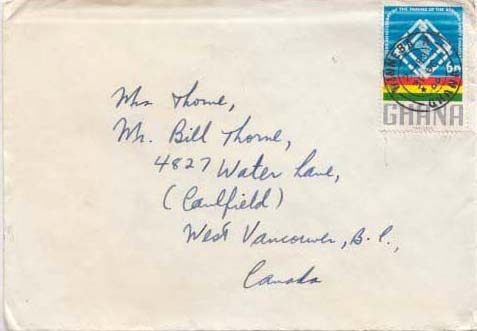 6np
GHANA
GHANA
Mrs Thorne,
Mr. Bill Thorne,
4827 Water Lane,
(Caulfield)
West Vancouver, B.C.,
Canada